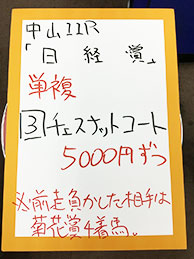 中山11R
「日経賞」
単複
3チェスナットコート
5000円ずつ
※前走負かした相手は
菊花賞4着馬。